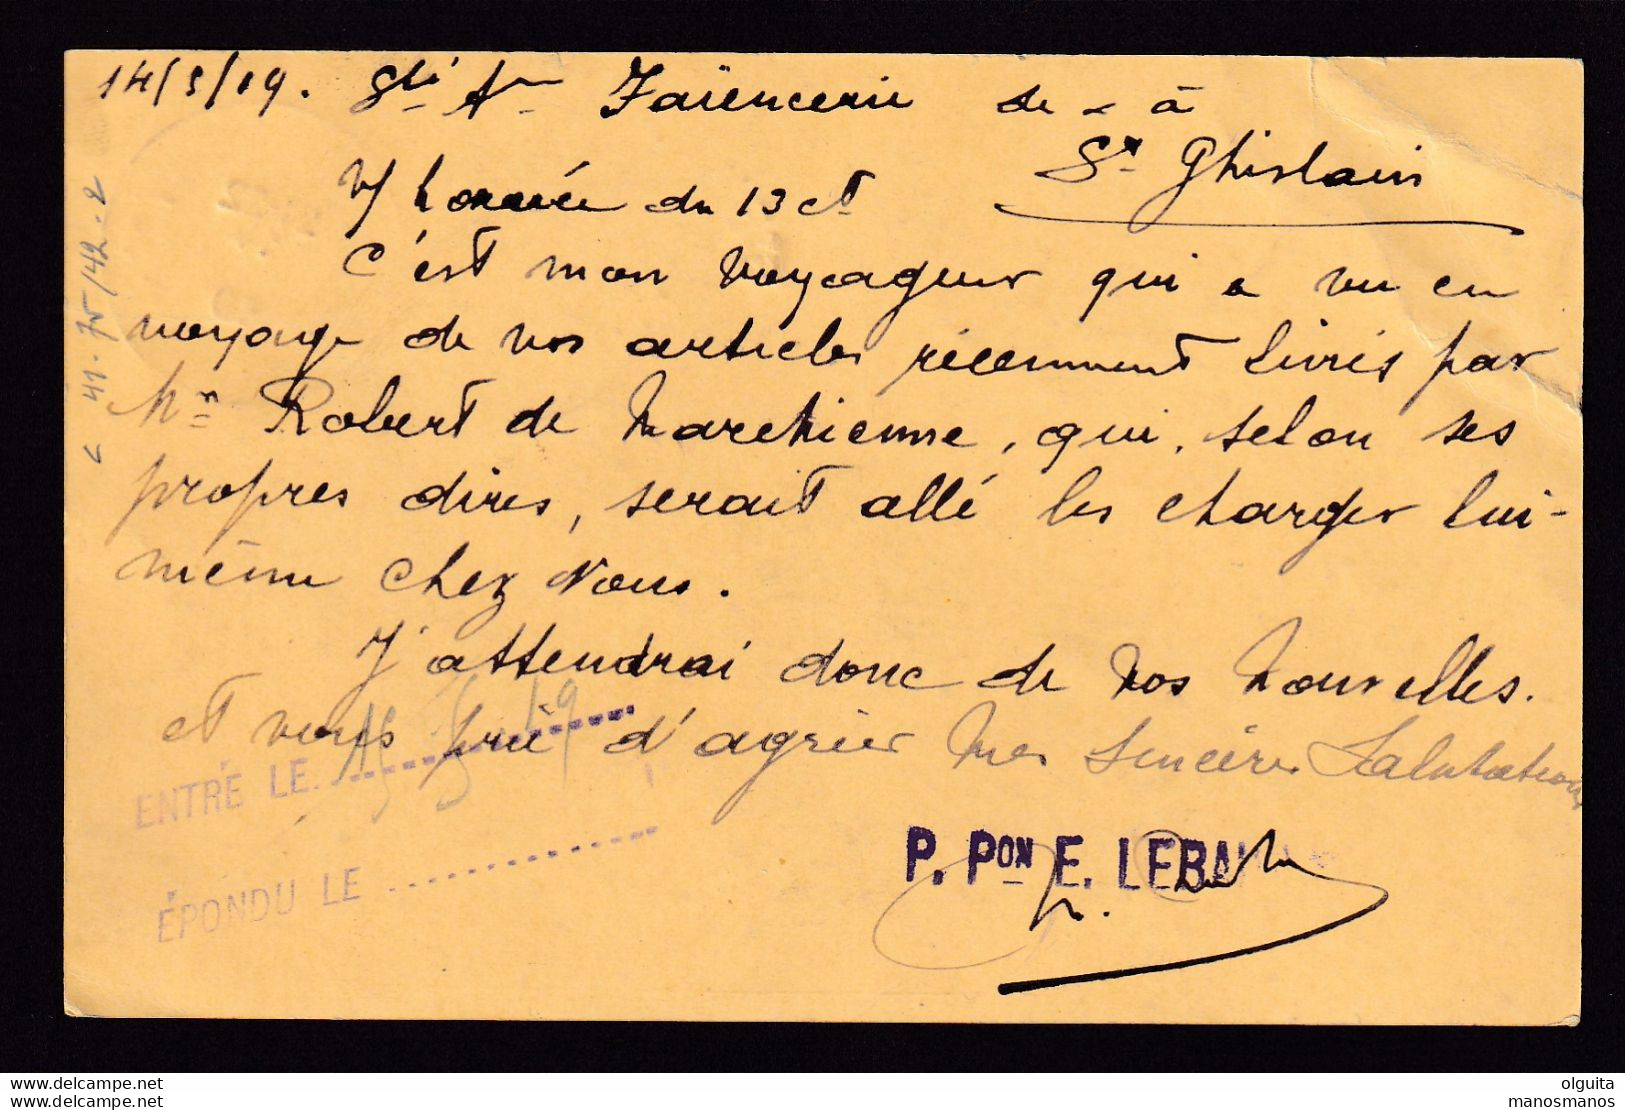 14/5/19. Sté Ame Faïencerie de - à
St Ghislain
V/ honorée du 13 ct
C'est mon voyageur qui a vu en
voyage de vos articles récemment livrés par
Mr Robert de Marchienne, qui, selon ses
propres dires, serait allé les charger lui-
même chez Vous.
J'attendrai donc de Vos Nouvelles.
et vous prie d'agréer mes sincères Salutations
ENTRÉ LE
ÉPONDU LE
P. PON E. LEBA
< 41-75/42-2
delcampe.net
delcampe.net
olguita
manosmanos